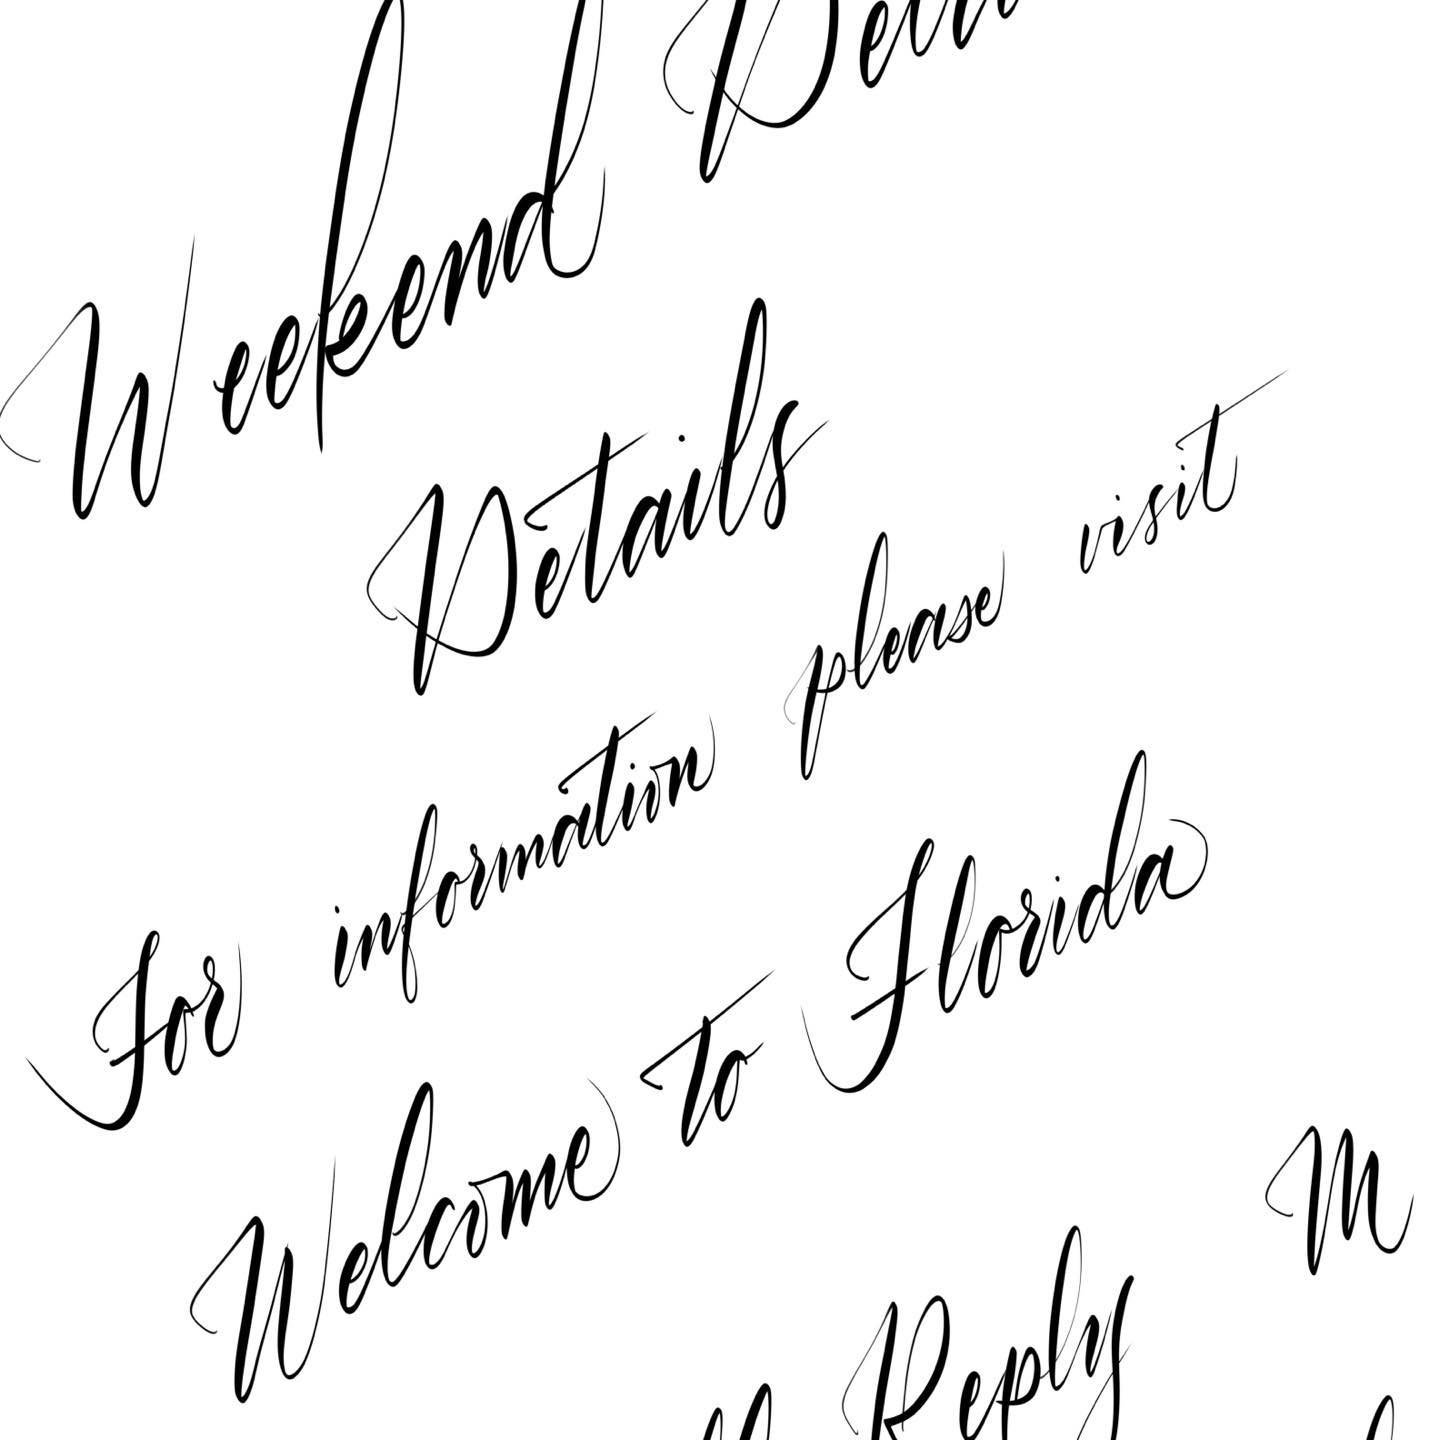 Weekend
Details
For information please visit
Welcome to Florida
M
Reply